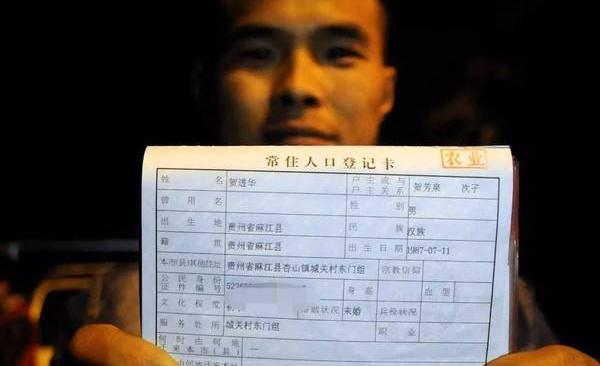 常住人口登记卡 农业
姓名 贺进华 户主或与户主关系 贺芳泉 次子
曾用名 性别 男
出生地 贵州省麻江县 民族 汉族
籍贯 贵州省麻江县 出生日期 1987-07-11
本市(县)其他住址 贵州省麻江县杏山镇城关村东门组 宗教信仰
公民身份证件编号 身高 血型
文化程度 婚姻状况 未婚 兵役状况
服务处所 城关村东门组 职业
何时由何地迁来本市(县) —